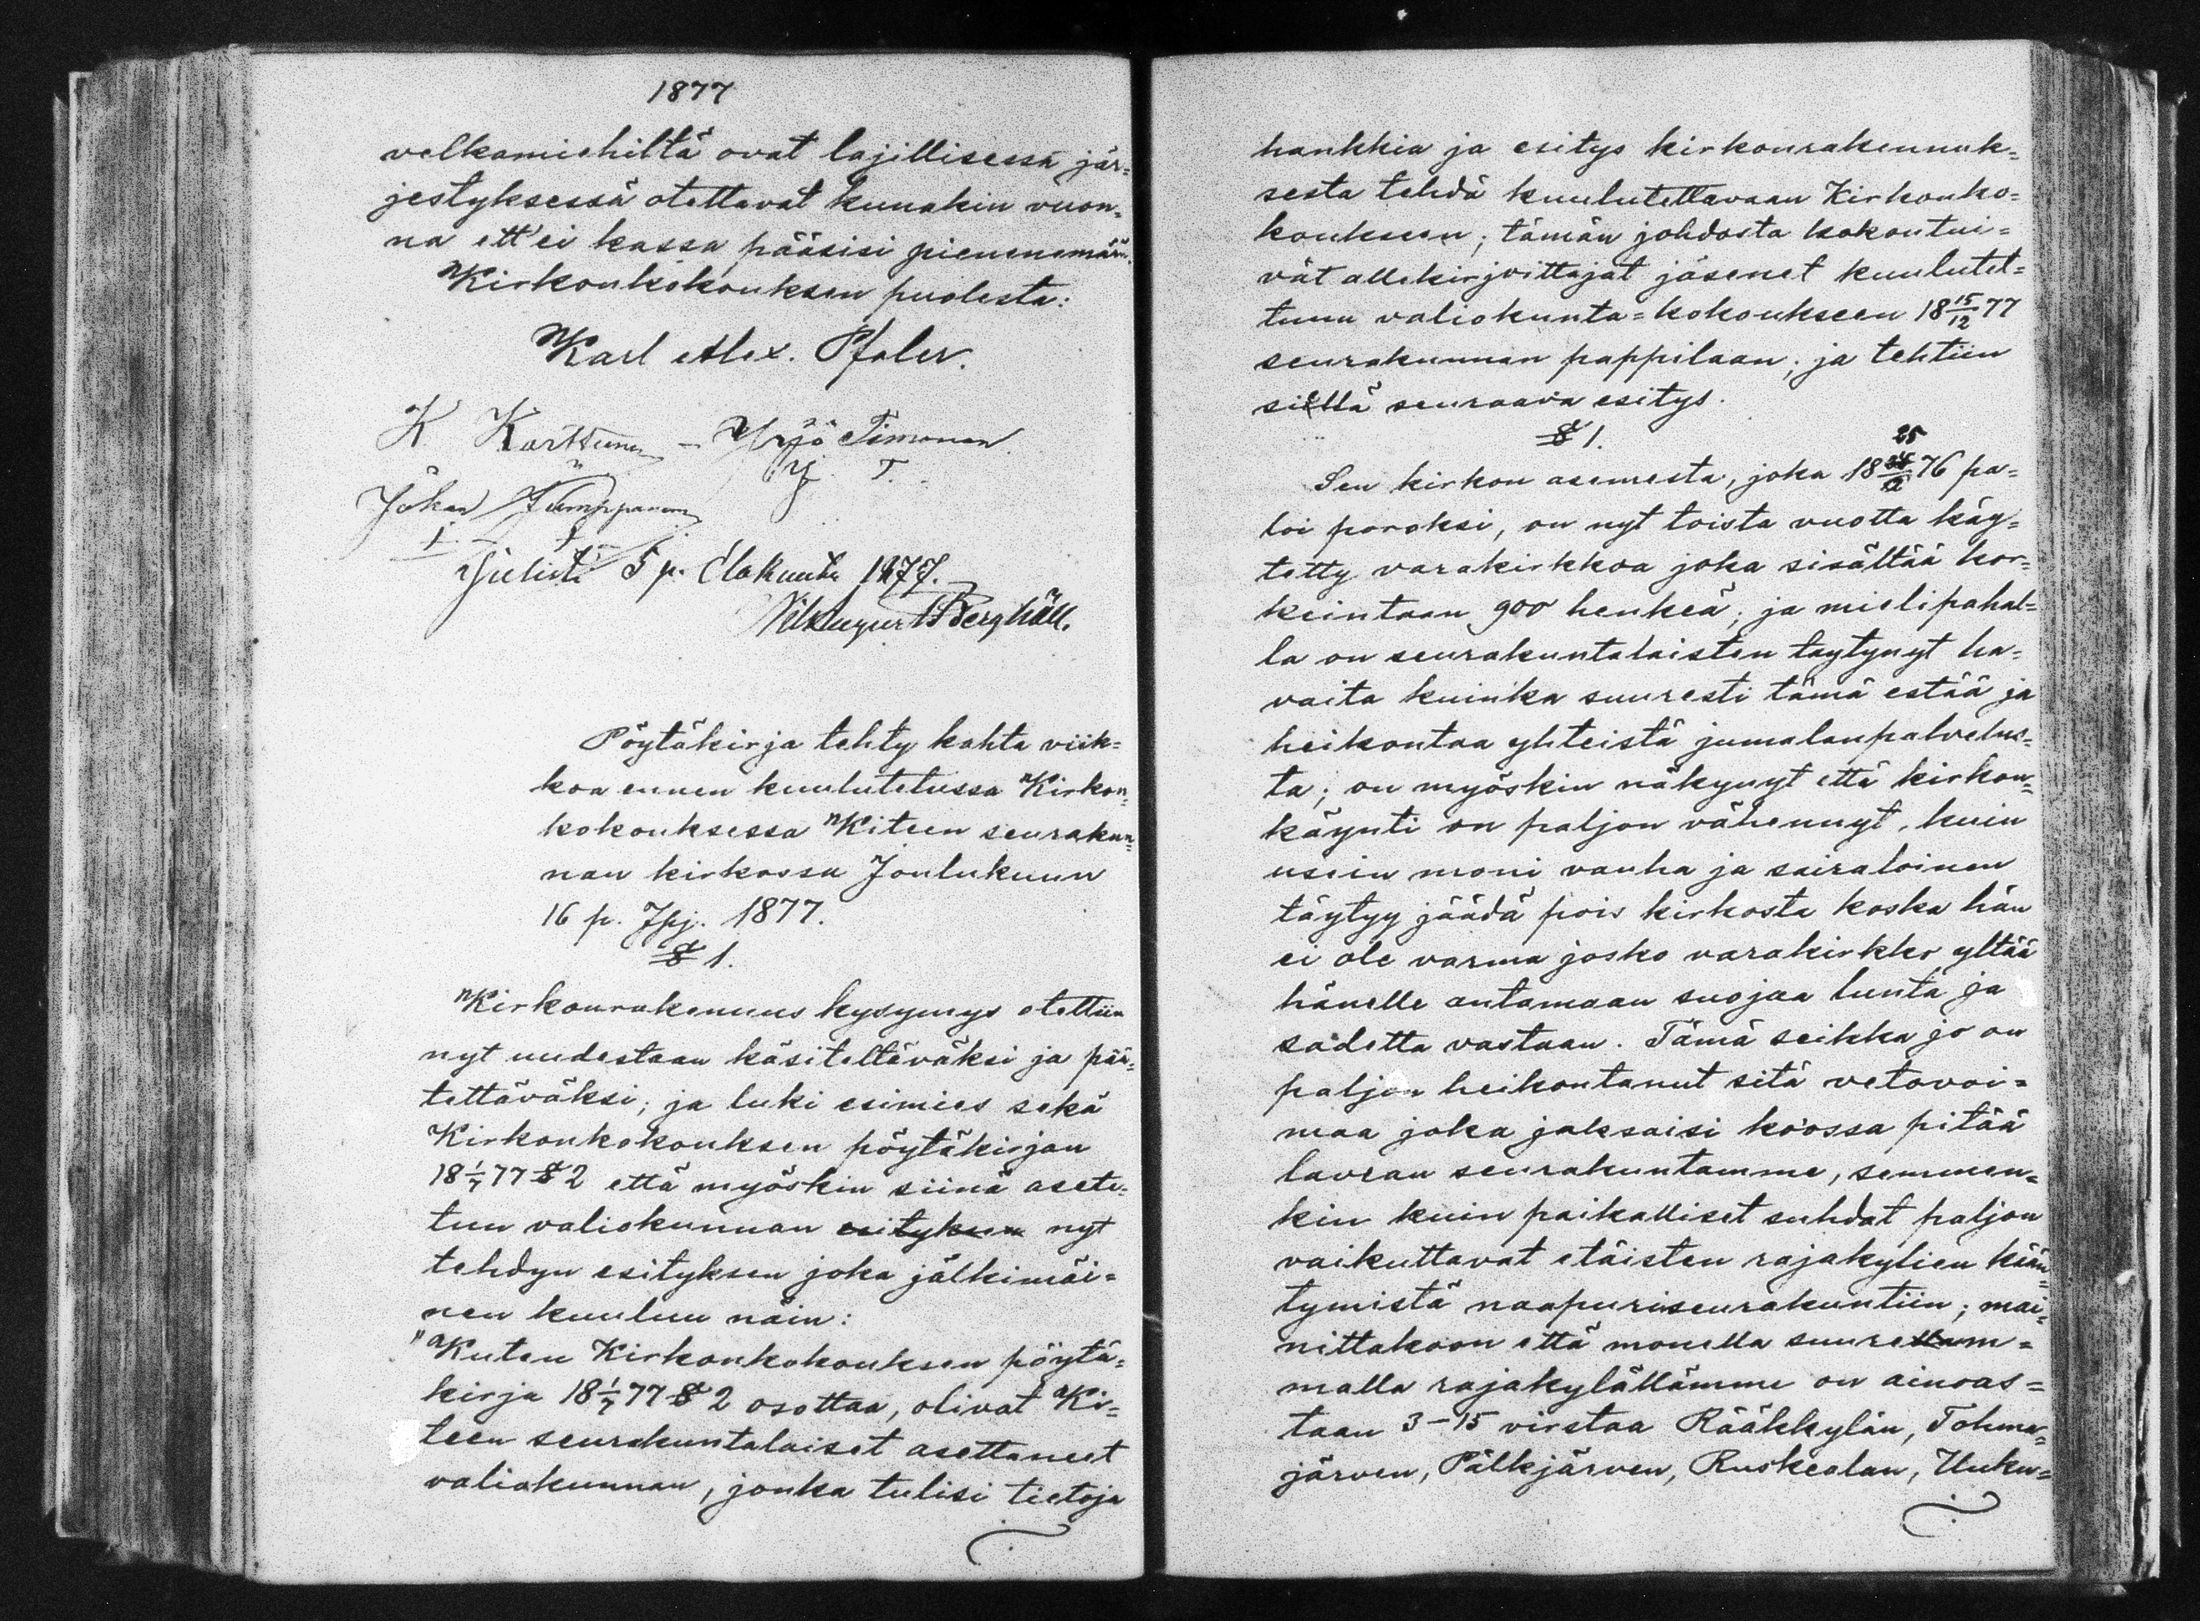 1877
velkamiehiltä ovat lajillisessa jär=
jestyksessä otettavat kunakin vuon=
na ett'ei kassa pääsisi pienenemään.
Kirkonkokouksen puolesta:
Karl Alex. Pfaler.
K. Karttunen – Yrjö Timonen
Y. T.
Johan Tumppanen
Julisti 5 p. Elokuuta 1877.
Berghäll.
Pöytäkirja tehty kahta viik=
koa ennen kuulutetussa Kirkon=
kokouksessa Kiteen seurakun=
nan kirkossa Joulukuun
16 p. Jpj. 1877.
§ 1.
Kirkonrakennus kysymys otettiin
nyt uudestaan käsiteltäväksi ja pää=
tettäväksi; ja luki esimies sekä
Kirkonkokouksen pöytäkirjan
18 1/7 77 § 2 että myöskin siinä asete=
tun valiokunnan esityksen nyt
tehdyn esityksen joka jälkimäi=
nen kuuluu näin:
"Kuten Kirkonkokouksen pöytä=
kirja 18 1/7 77 § 2 osottaa, olivat Ki=
teen seurakuntalaiset asettaneet
valiokunnan, jonka tulisi tietoja
hankkia ja esitys kirkonrakennuk=
sesta tehdä kuulutettavaan Kirkonko=
koukseen; tämän johdosta kokoontui=
vat allekirjoittajat jäsenet kuulutet=
tuun valiokunta=kokoukseen 18 15/12 77
seurakunnan pappilaan; ja tehtiin
siellä seuraava esitys.
§ 1.
Sen kirkon asemesta, joka 18 25/2 76 pa=
loi poroksi, on nyt toista vuotta käy=
tetty varakirkkoa joka sisältää kor=
keintaan 900 henkeä; ja mielipahal=
la on seurakuntalaisten taytynyt ha=
vaita kuinka suuresti tämä estää ja
heikontaa yhteistä jumalanpalvelus=
ta; on myöskin näkynyt että kirkon=
käynti on paljon vähennyt, kuin
usein moni vanha ja sairaloinen
täytyy jäädä pois kirkosta koska hän
ei ole varma josko varakirkko yltää
hänelle antamaan suojaa lunta ja
sadetta vastaan. Tämä seikka jo on
paljon heikontanut sitä vetovoi=
maa joka jaksaisi koossa pitää
lavean seurakuntamme, semmen=
kin kuin paikalliset suhdat paljon
vaikuttavat etäisten rajakylien kään=
tymistä naapuriseurakuntiin; mai=
nittakoon että monella suurellam=
malla rajakylällämme on ainoas=
taan 3–15 virstaa Rääkkylän, Tohma=
järven, Pälkjärven, Ruskealan, Uuku=